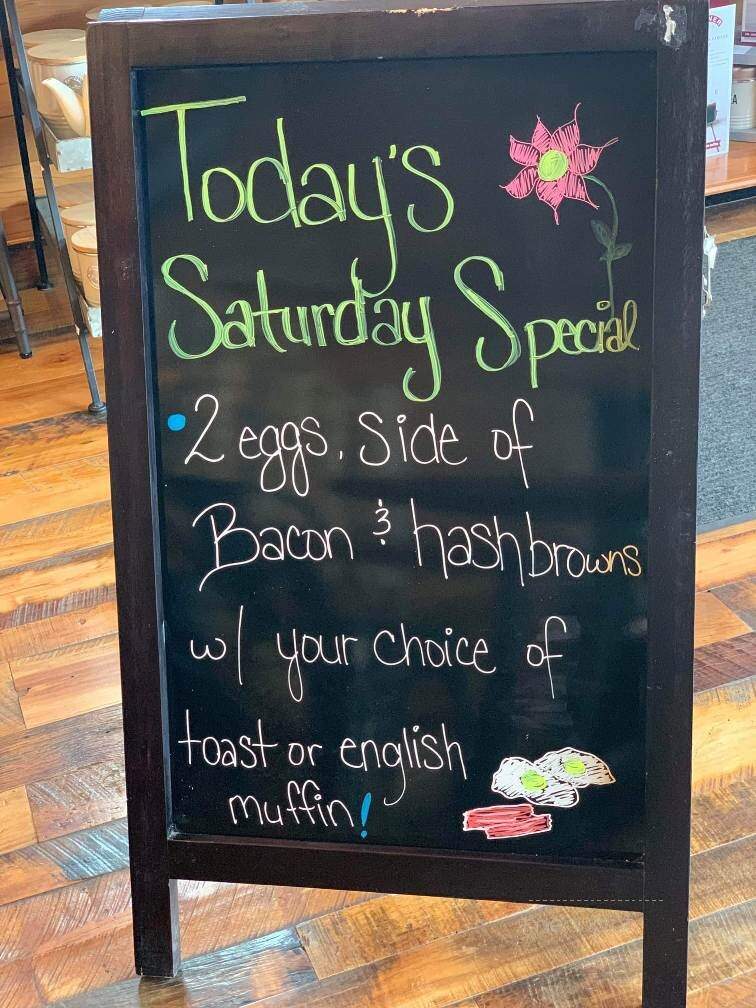 Today's
Saturday Special
• 2 eggs. Side of
Bacon & hashbrowns
w/ your choice of
toast or english
muffin!